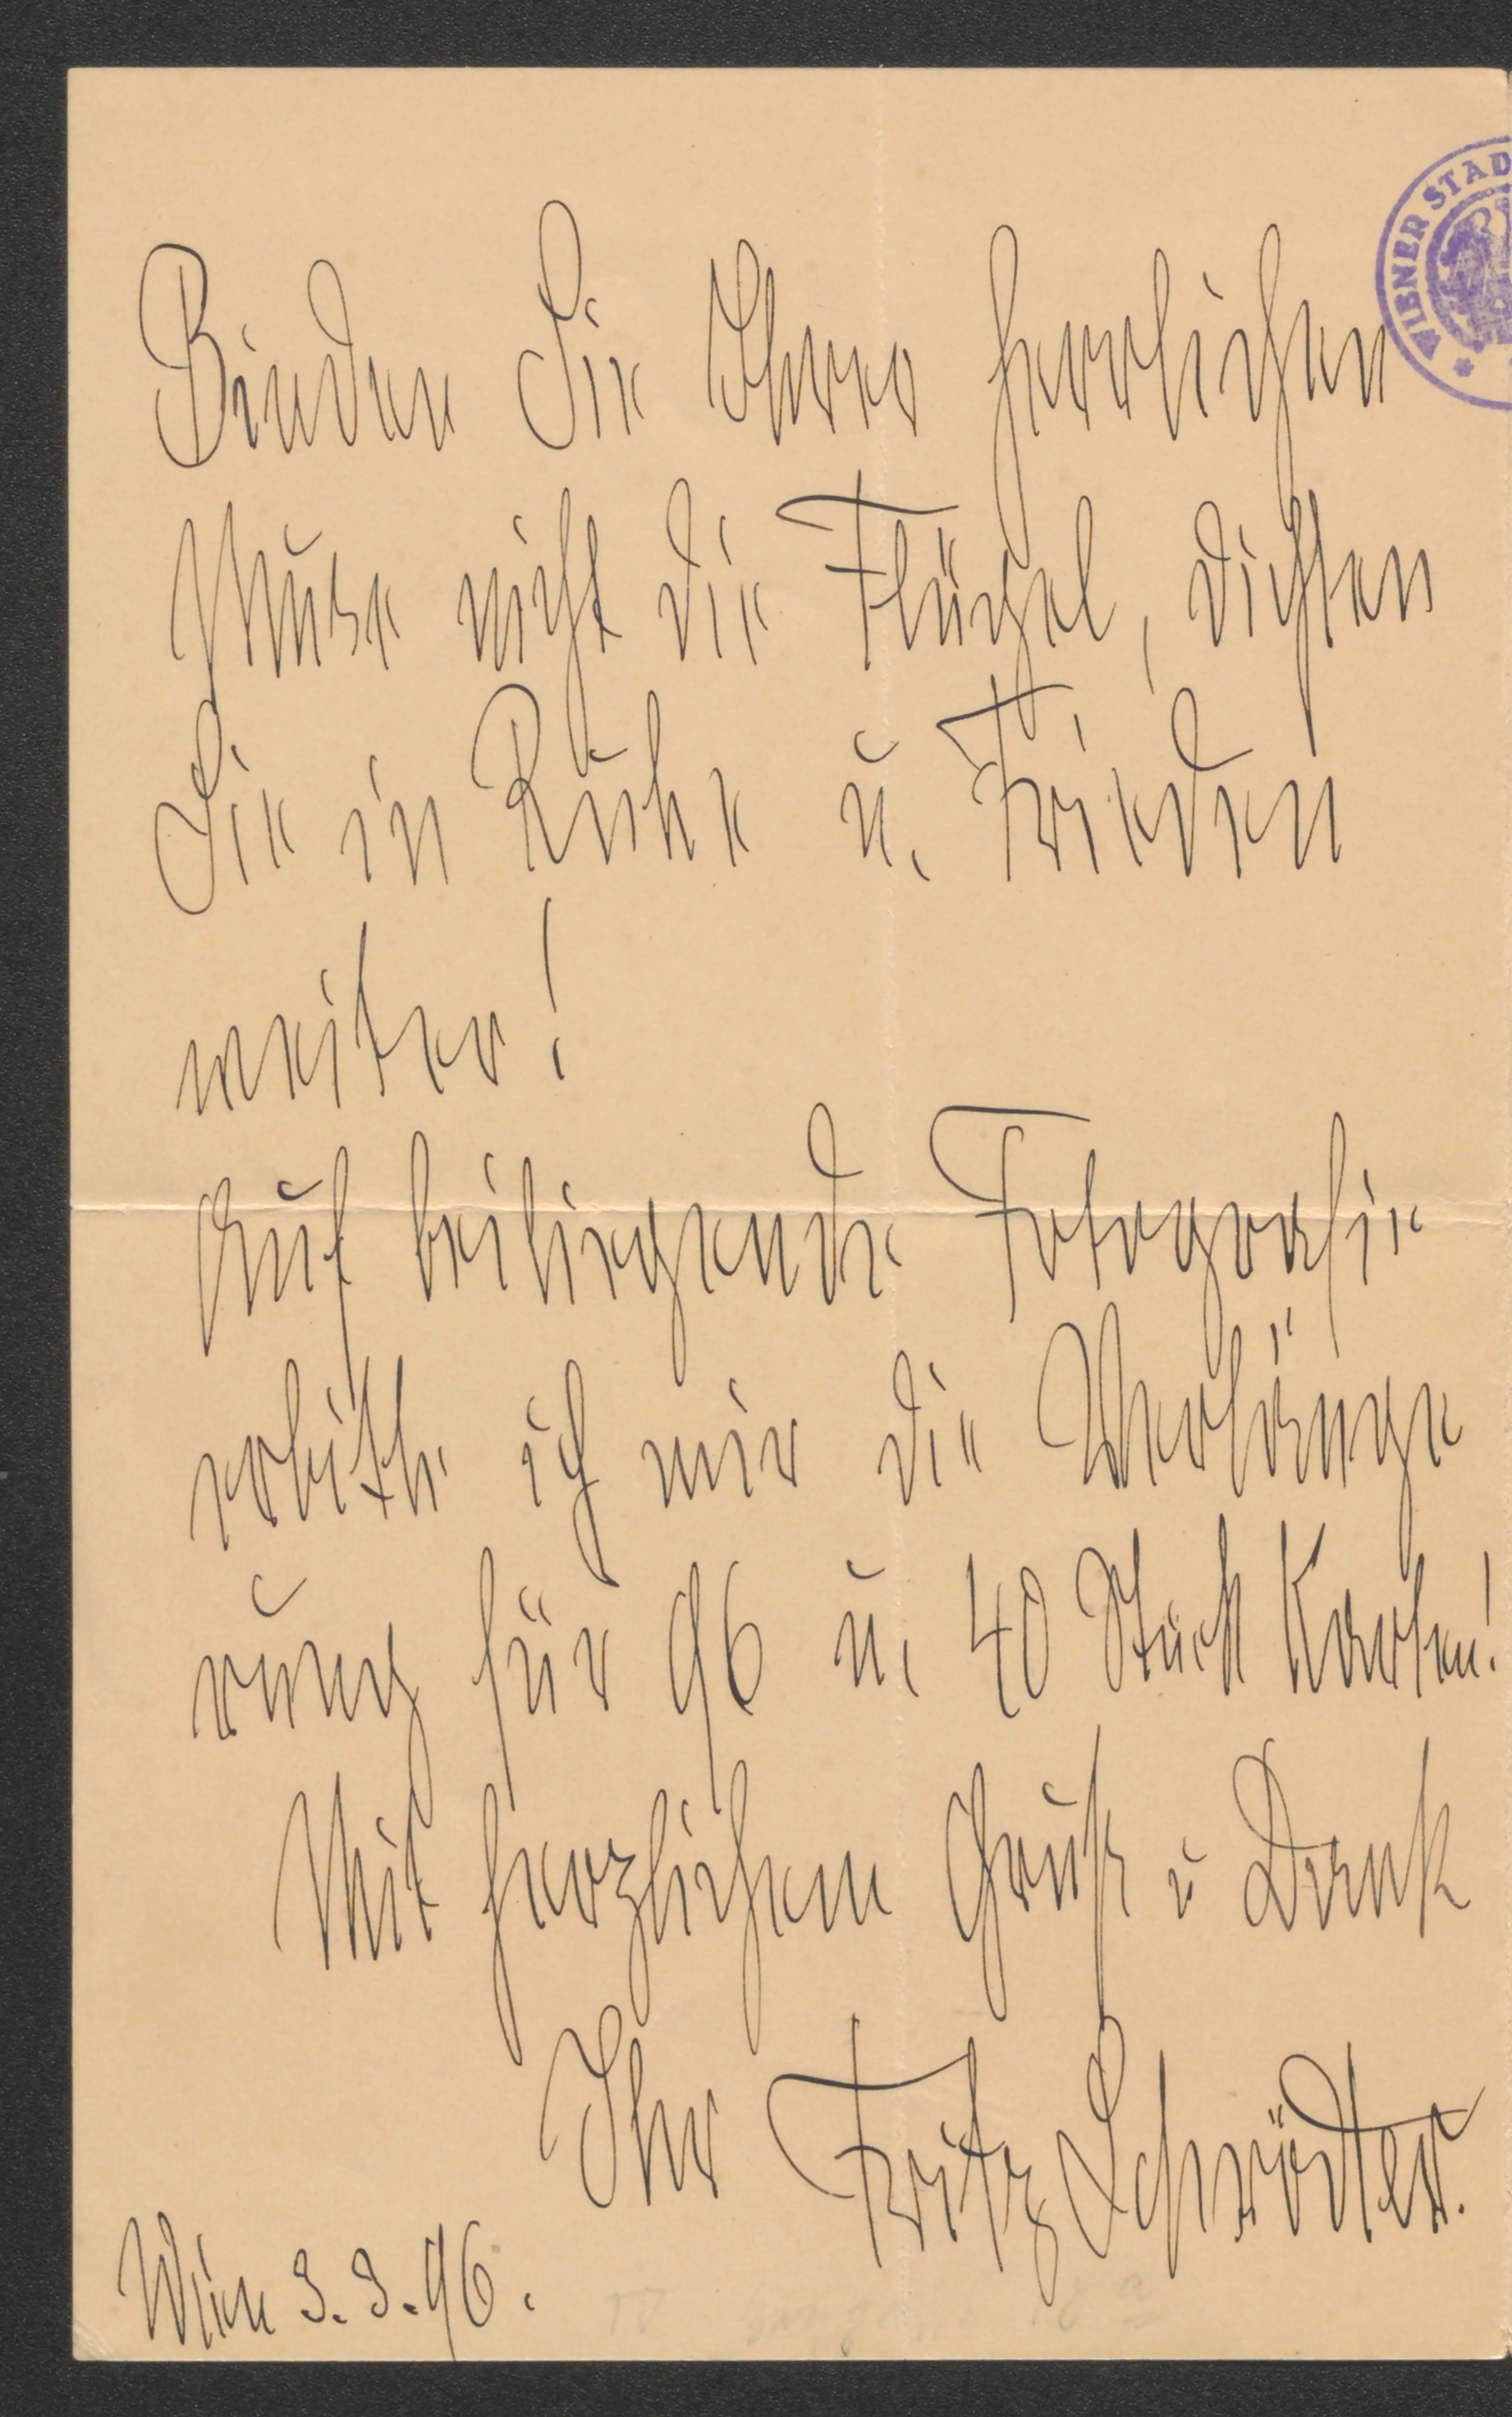 WIENER STAD
Binden Sie Ihrer herrlichen
Muse nicht die Flügel, dichten
Sie in Ruhe u. Frieden
weiter!
Auf beiliegende Fotografie
erbitte ich mir die Verlänge
rung für 96 u. 40 Stück Karten!
Mit herzlichem Gruß u Dank
Ihr Fritz Schrödter.
Wien 3.3.96.